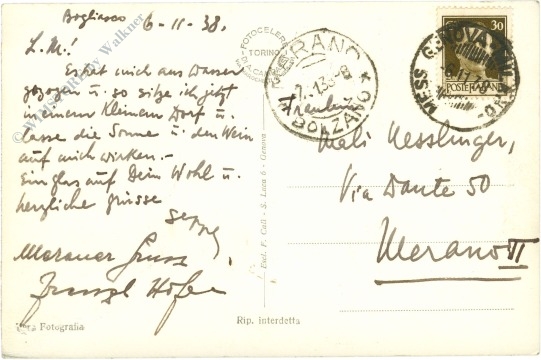 Bogliasco 6-11-38.
L. M.!
Es hat mich aus Wasser
gezogen u. so sitze ich jetzt
in einem kleinen Dorf u.
lasse die Sonne u. den Wein
auf mich wirken.-
Ein glas auf Dein Wohl u.
herzliche grüsse
Seppl
Meraner Gruss
Franzl Hofer
Vera Fotografia
Rip. interdetta
Ed. F. Cali - S. Luca 6 - Genova
FOTOCELERE
TORINO
MERANO
BOLZANO
MESS GENOVA
30
POSTE ITALIANE
Nesslinger,
Via Dante 50
Merano II